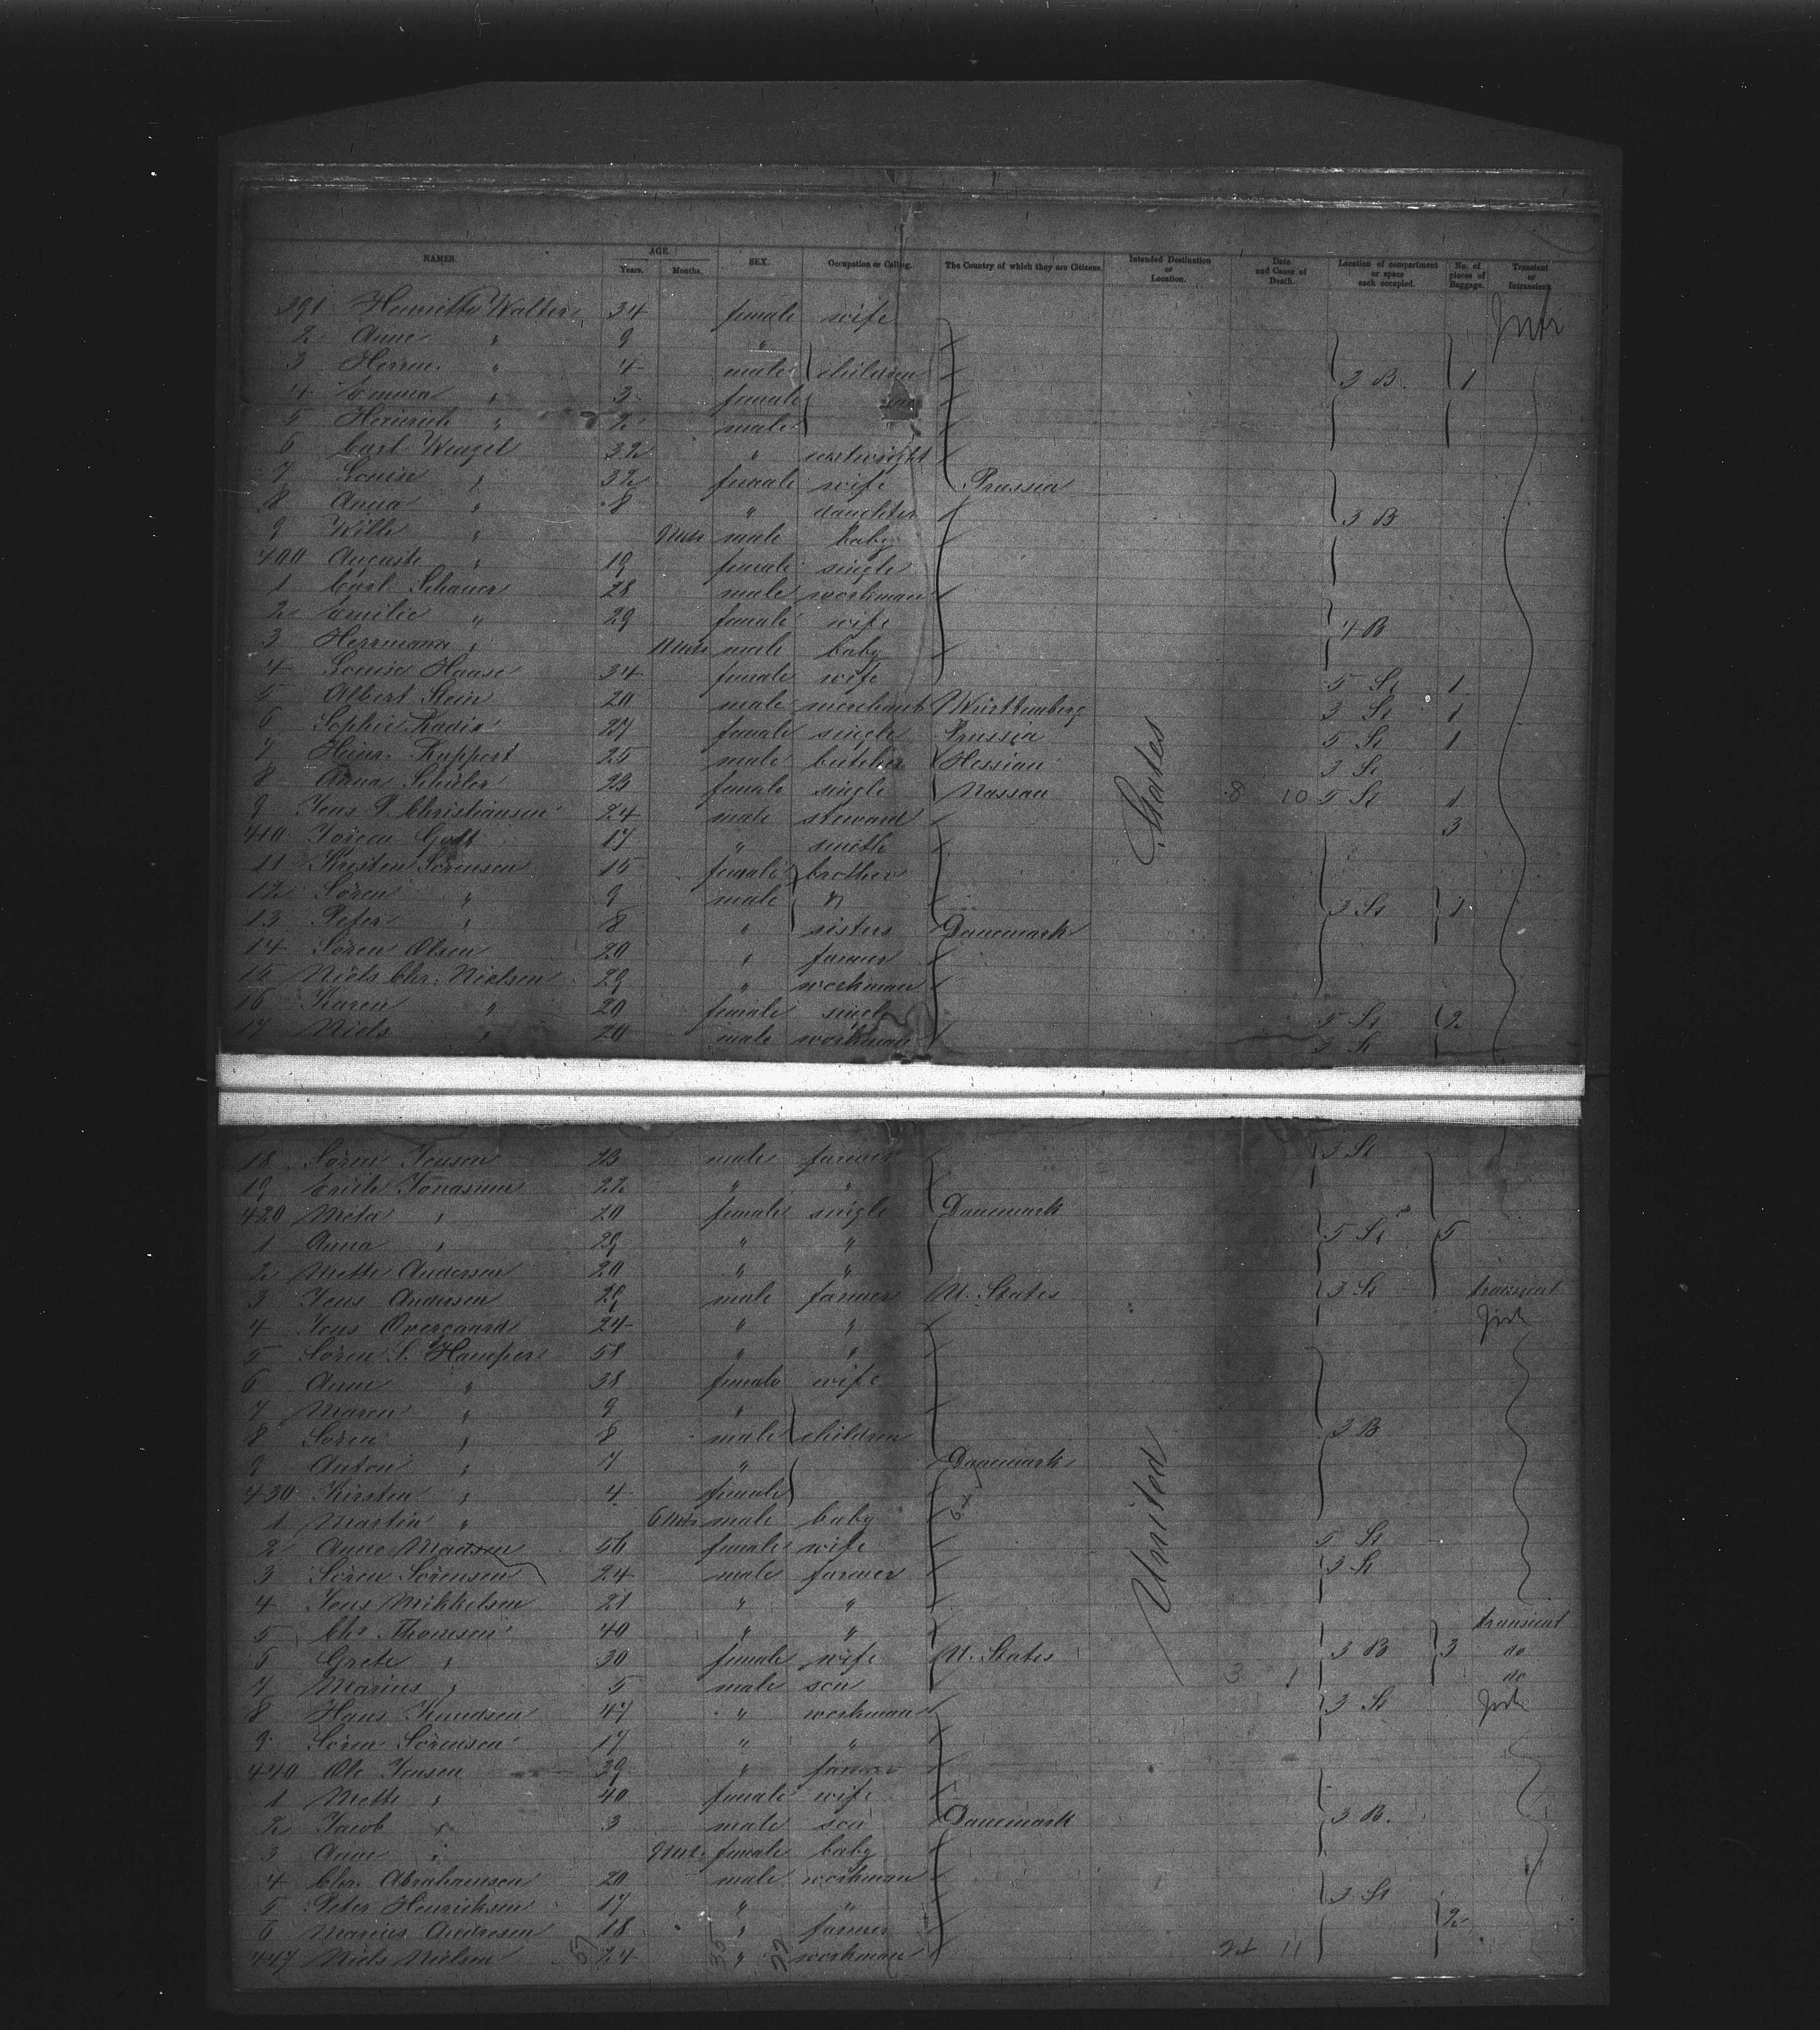 NAMES. AGE. SEX. Occupation or Calling. The Country of which they are Citizens. Intended Destination or Location. Date and Cause of Death. Location of compartment or space each occupied. No. of pieces of Baggage. Transient or Intransient
Years. Months.
391 Henriette Walter 34 female wife
2 Anne " 9 "
3 Herrm. " 4 male children 3 B. 1
4 Emma " 3 female
5 Heinrich " 2 male
6 Carl Wenzel 32 " cartwright
7 Louise " 32 female wife Prussia
8 Anna " 8 " daughter 3 B
9 Wilh " 9 Mts male baby
400 Auguste " 19 female single
1 Carl Schauer 28 male workman
2 Emilie " 29 female wife 4 B
3 Herrmann " 11 Mts male baby
4 Louise Haase 34 female wife 5 St 1
5 Albert Stein 20 male merchant Württemberg 3 St 1
6 Sophie Radix 27 female single Prussia 5 St 1
7 Heinr. Ruppert 25 male butcher Hessian 3 St
8 Anna Schüler 23 female single Nassau 8 10 5 St 1
9 Jens P. Christiansen 24 male steward 3
410 Sören Godt 17 " smith
11 Kirsten Sörensen 15 female brother
12 Sören " 9 male " 3 St 1
13 Peter " 8 " sisters Danemark
14 Sören Olsen 20 " farmer
15 Niels Chr. Nielsen 29 " workman
16 Karen " 20 female single 5 St 2
17 Niels " 20 male workman 3 St
States
18 Sören Jensen 23 male farmer 3 St
19 Erich Jonassen 22 " "
420 Meta " 20 female single Danemark
1 Anna " 29 " " 5 St 5
2 Mette Andersen 20 " "
3 Jens Andersen 29 male farmer U. States 3 St transient
4 Jens Overgaard 24 " "
5 Sören S. Hamper 58 " "
6 Anne " 38 female wife
7 Maren " 9 "
8 Sören " 8 male children 3 B
9 Anton " 7 " Danemark
430 Kirsten " 4 female
1 Martin " 6 Mts male baby
2 Anne Madsen 56 female wife 5 St
3 Sören Sörensen 24 male farmer 3 St
4 Jens Mikkelsen 21 " "
5 Chr. Thomsen 40 " " transient
6 Grete " 30 female wife U. States 3 B 3 do
7 Marius " 5 male son 3 1 do
8 Hans Knudsen 47 " workman 3 St
9 Sören Sörensen 17 " "
440 Ole Jensen 39 " farmer
1 Mette " 40 female wife
2 Jacob " 3 male son Danemark 3 B.
3 Anne " 9 Mts. female baby
4 Chr. Abrahamsen 20 male workman
5 Peter Henricksen 17 " " 3 St
6 Marius Andresen 18 " farmer 2
447 Niels Nielsen 57 24 35 " 22 workman 24 11
United